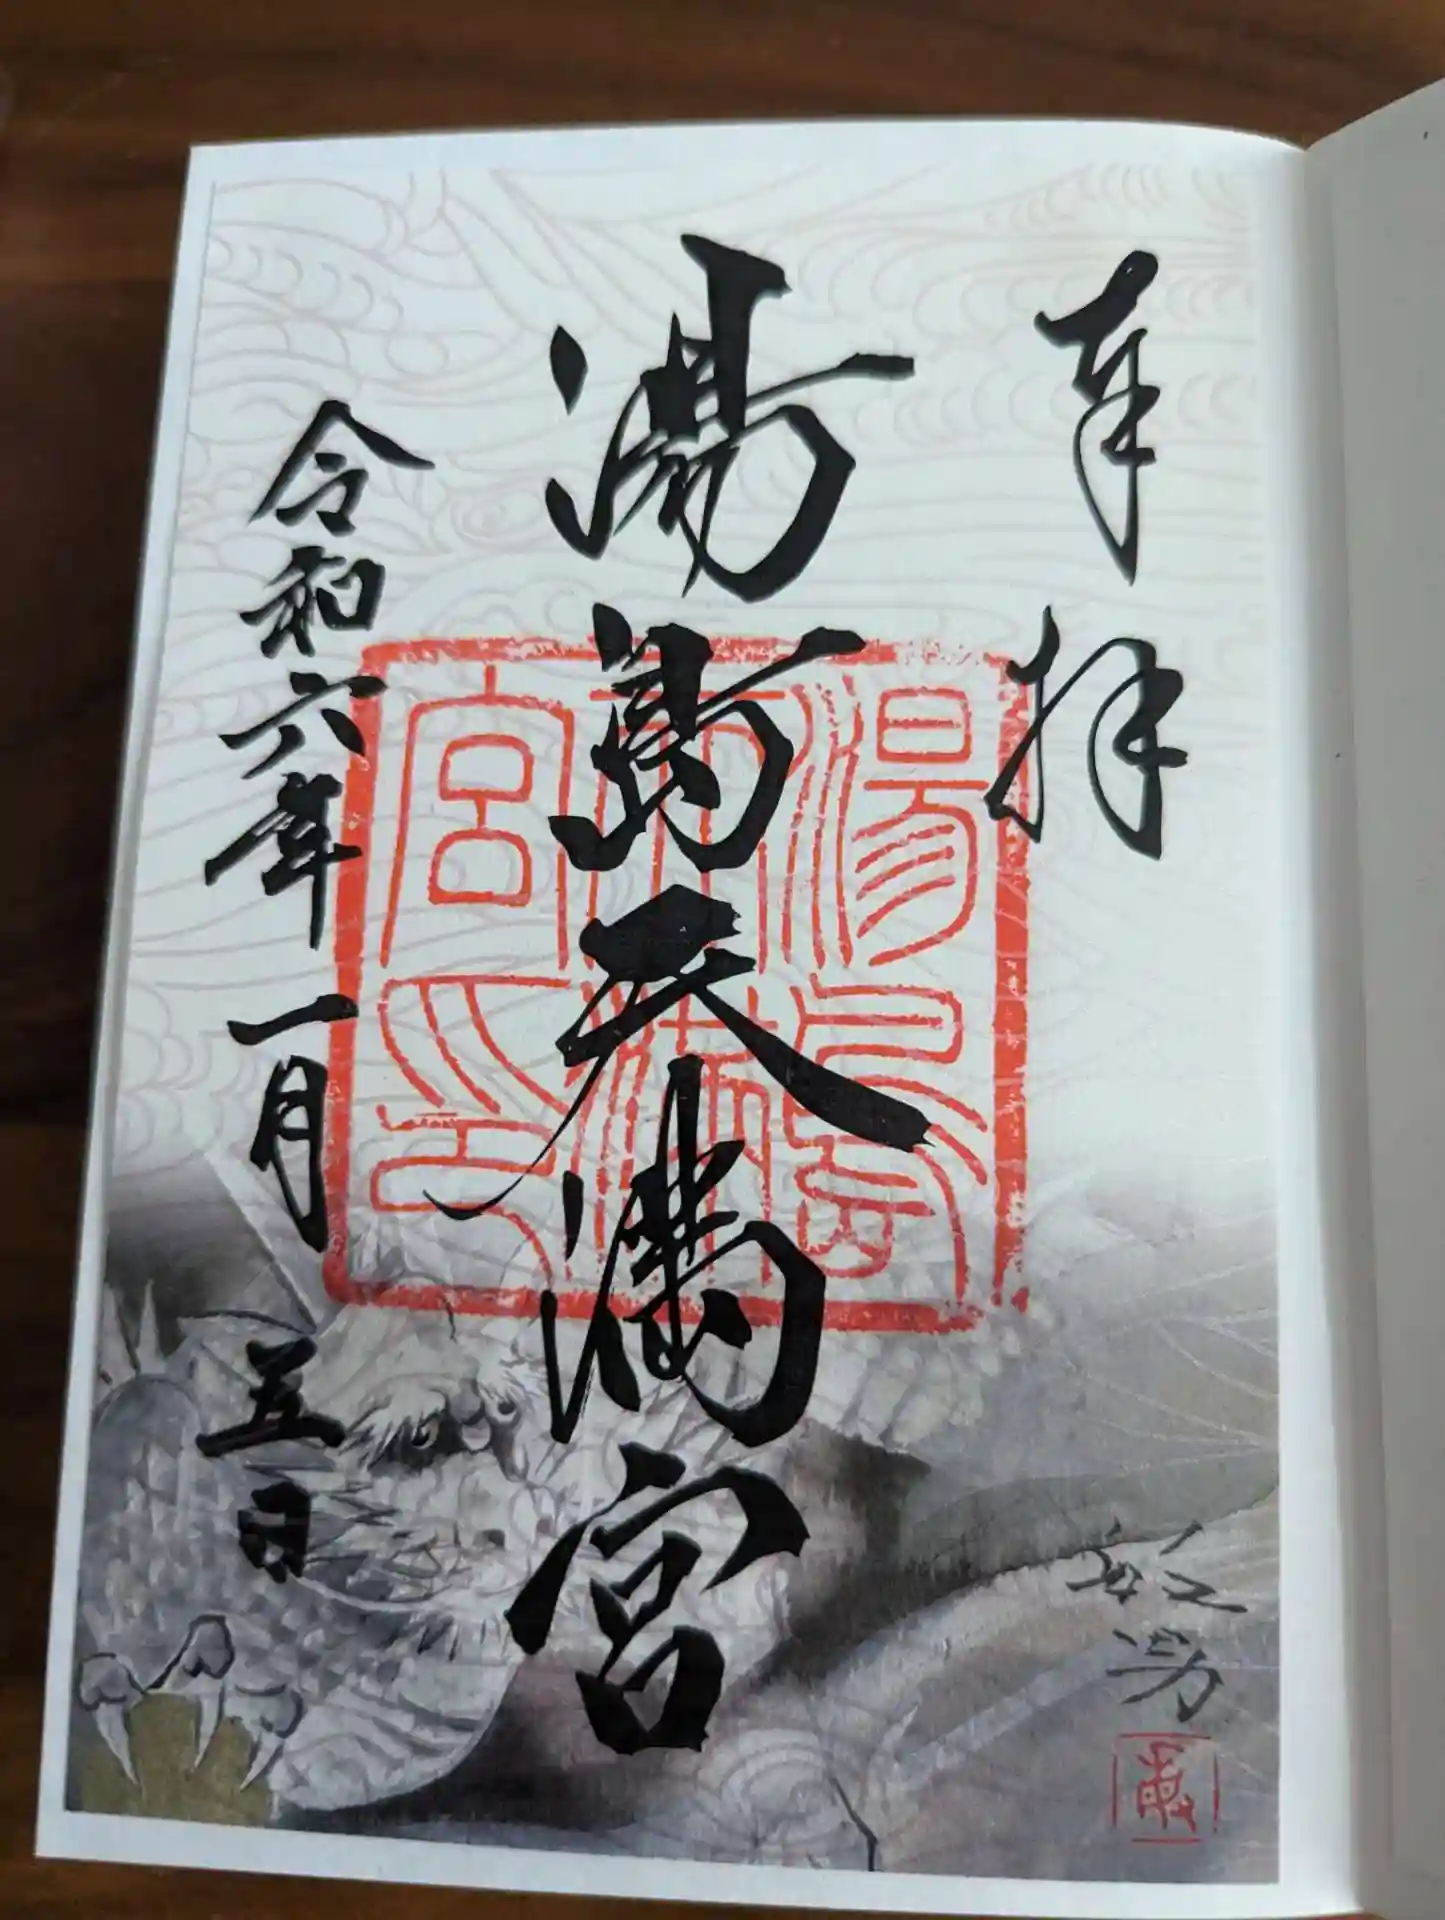 奉拝
湯島天満宮
令和六年一月五日
湯島天満宮之印